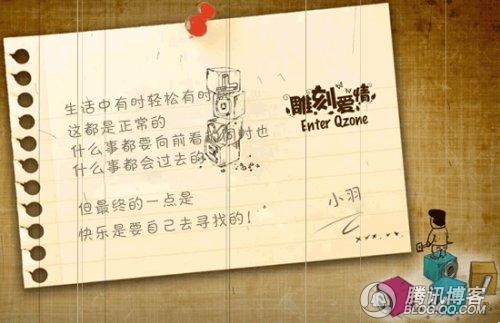 生活中有时轻松有时
这都是正常的
什么事都要向前看 有时也
什么事都会过去的
但最终的一点是
快乐是要自己去寻找的！
小羽
雕刻爱情
Enter Qzone
xxx.xx.
腾讯博客
BLOG.QQ.COM